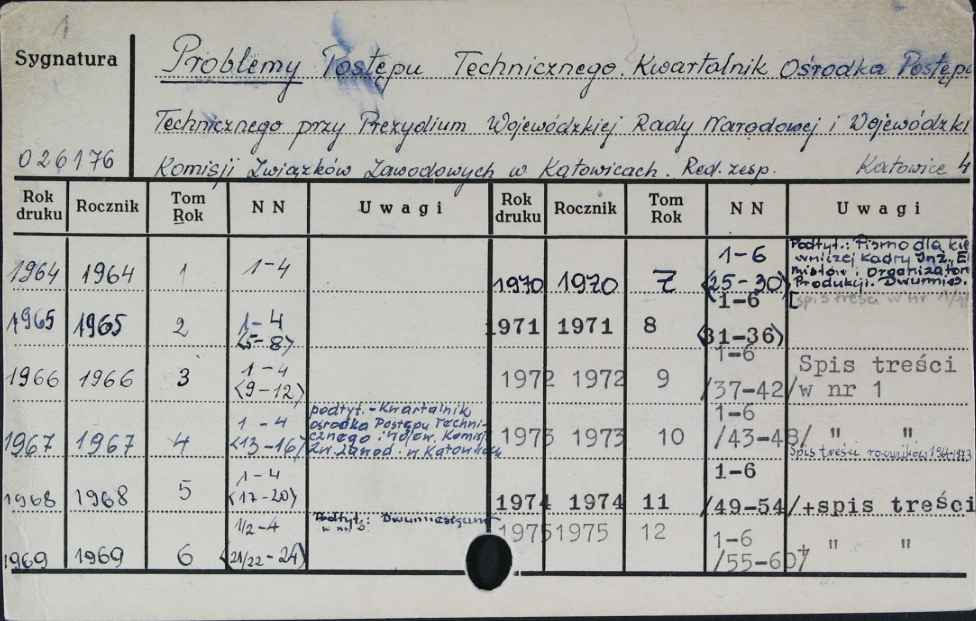 1
Sygnatura
Problemy Postępu Technicznego. Kwartalnik Ośrodka Postępu
Technicznego przy Prezydium Wojewódzkiej Rady Narodowej i Wojewódzki
026176
Komisji Związków Zawodowych w Katowicach. Red. zesp. Katowice 4
Rok druku Rocznik Tom Rok NN Uwagi Rok druku Rocznik Tom Rok NN Uwagi
1964 1964 1 1-4
1965 1965 2 1-4 <5-8>
1966 1966 3 1-4 <9-12>
1967 1967 4 1-4 <13-16> podtyt. - Kwartalnik
ośrodka Postępu Techni-
cznego i Wojew. Komisj
Zw. Zawod. w Katowicach
1968 1968 5 1-4 <17-20>
1969 1969 6 1/2-4 <21/22-24> Podtyt.: Dwumiesięcznik
1970 1970 7 1-6 <25-30> Podtyt.: Pismo dla kie
wniczej Kadry Inż., E
i Organizator
Produkcji. Dwumies.
[spis treści w nr
1971 1971 8 1-6 <31-36>
1972 1972 9 1-6 /37-42/ Spis treści
w nr 1
1973 1973 10 1-6 /43-48/ " "
Spis treści roczników 1964-1973
1974 1974 11 1-6 /49-54/ +spis treści
1975 1975 12 1-6 /55-60/ + " "